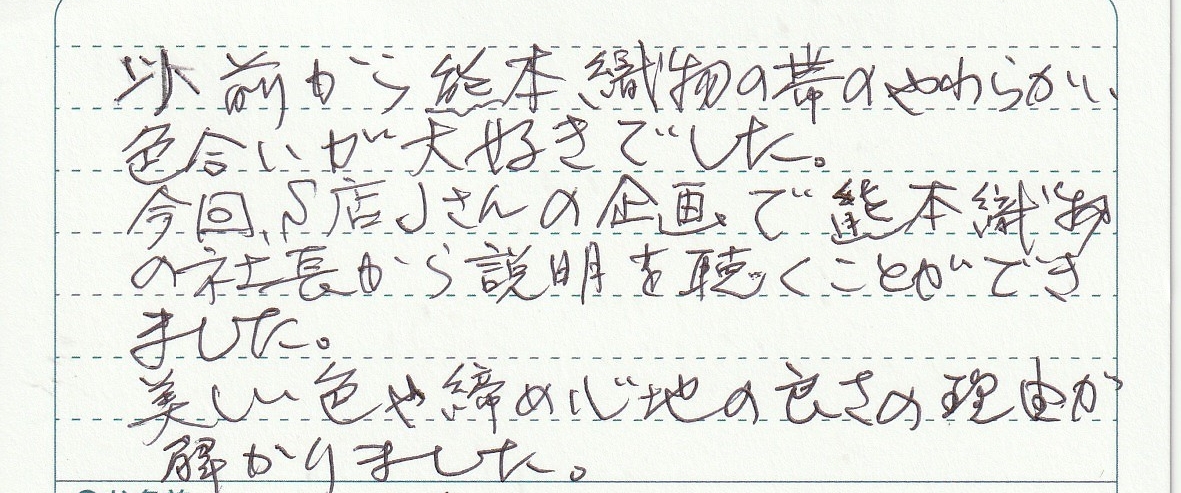 以前から熊本織物の帯のやわらかい
色合いが大好きでした。
今回、S店Jさんの企画で熊本織物
の社長から説明を聴くことができ
ました。
美しい色や締め心地の良さの理由が
解かりました。